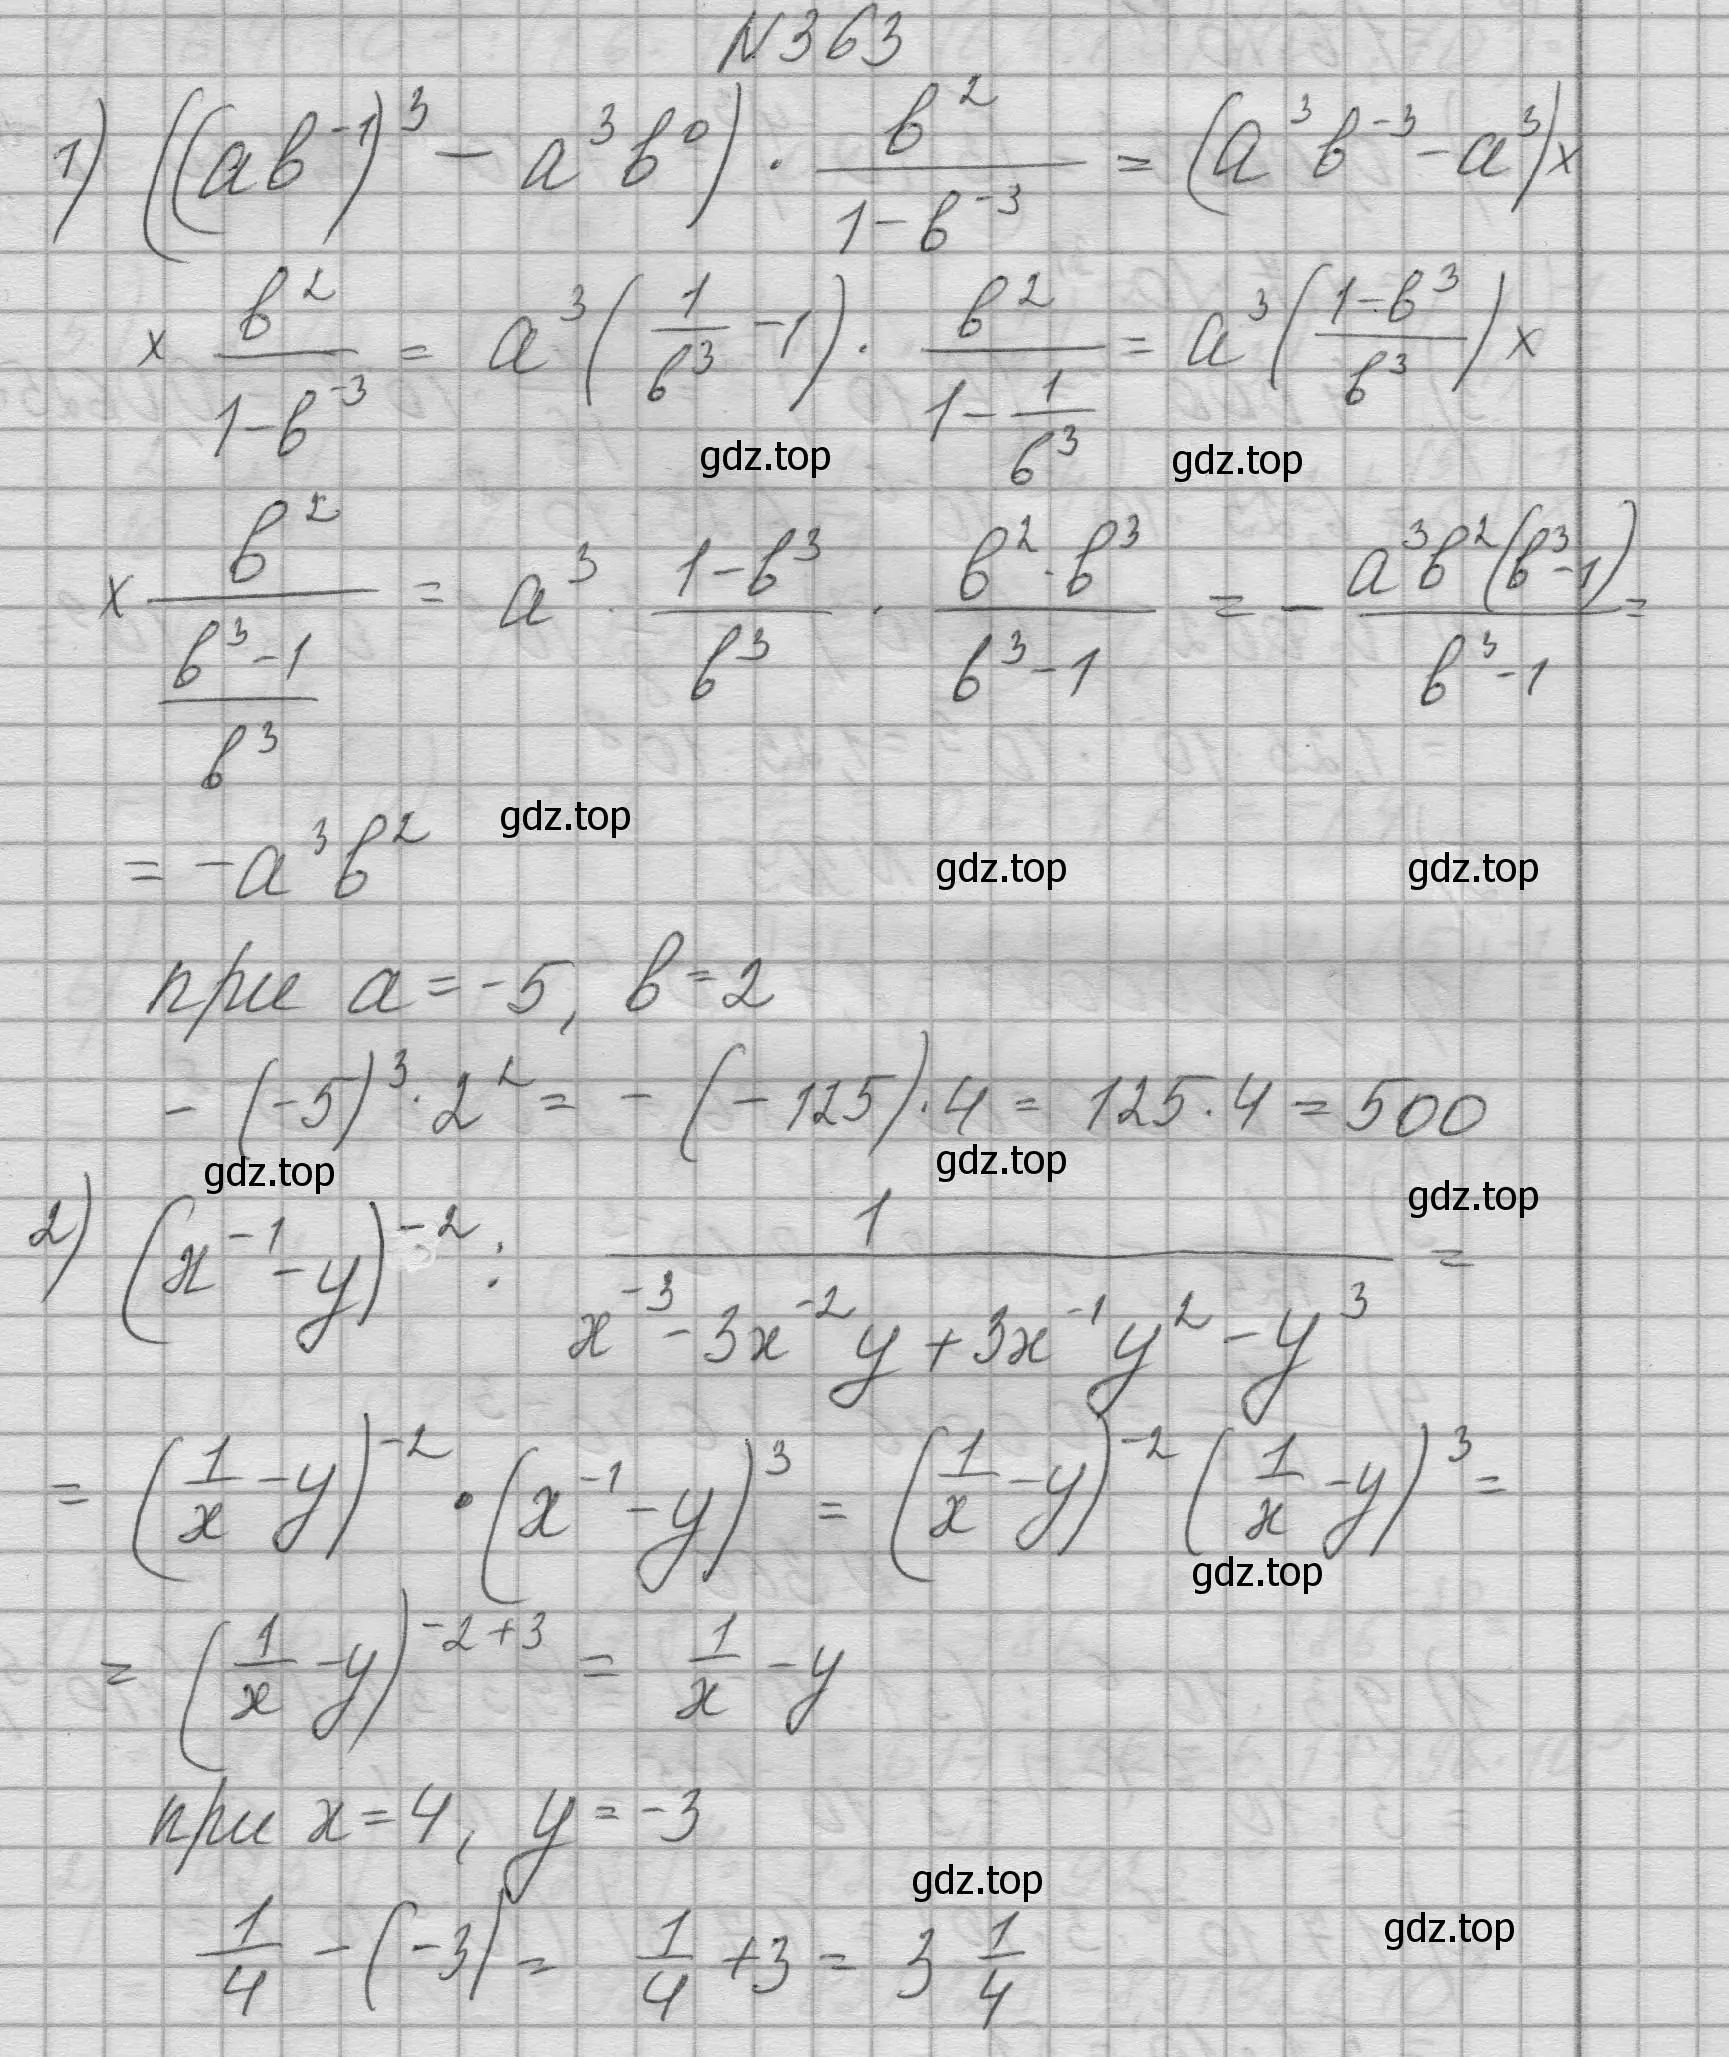 N 363
1) ((ab⁻¹)³ − a³b⁰) · b²/(1−b⁻³) = (a³b⁻³ − a³) ×
× b²/(1−b⁻³) = a³(1/b³ − 1) · b²/(1 − 1/b³) = a³((1−b³)/b³) ×
gdz.top gdz.top
× b²/((b³−1)/b³) = a³ · (1−b³)/b³ · (b²·b³)/(b³−1) = − a³b²(b³−1)/(b³−1) =
gdz.top
= −a³b²
gdz.top gdz.top
при a = −5, b = 2
− (−5)³ · 2² = − (−125) · 4 = 125 · 4 = 500
gdz.top gdz.top gdz.top
2) (x⁻¹ − y)⁻² : 1/(x⁻³ − 3x⁻²y + 3x⁻¹y² − y³) =
= (1/x − y)⁻² · (x⁻¹ − y)³ = (1/x − y)⁻² (1/x − y)³ =
gdz.top
= (1/x − y)⁻²⁺³ = 1/x − y
при x = 4, y = −3
gdz.top gdz.top
1/4 − (−3) = 1/4 + 3 = 3 1/4